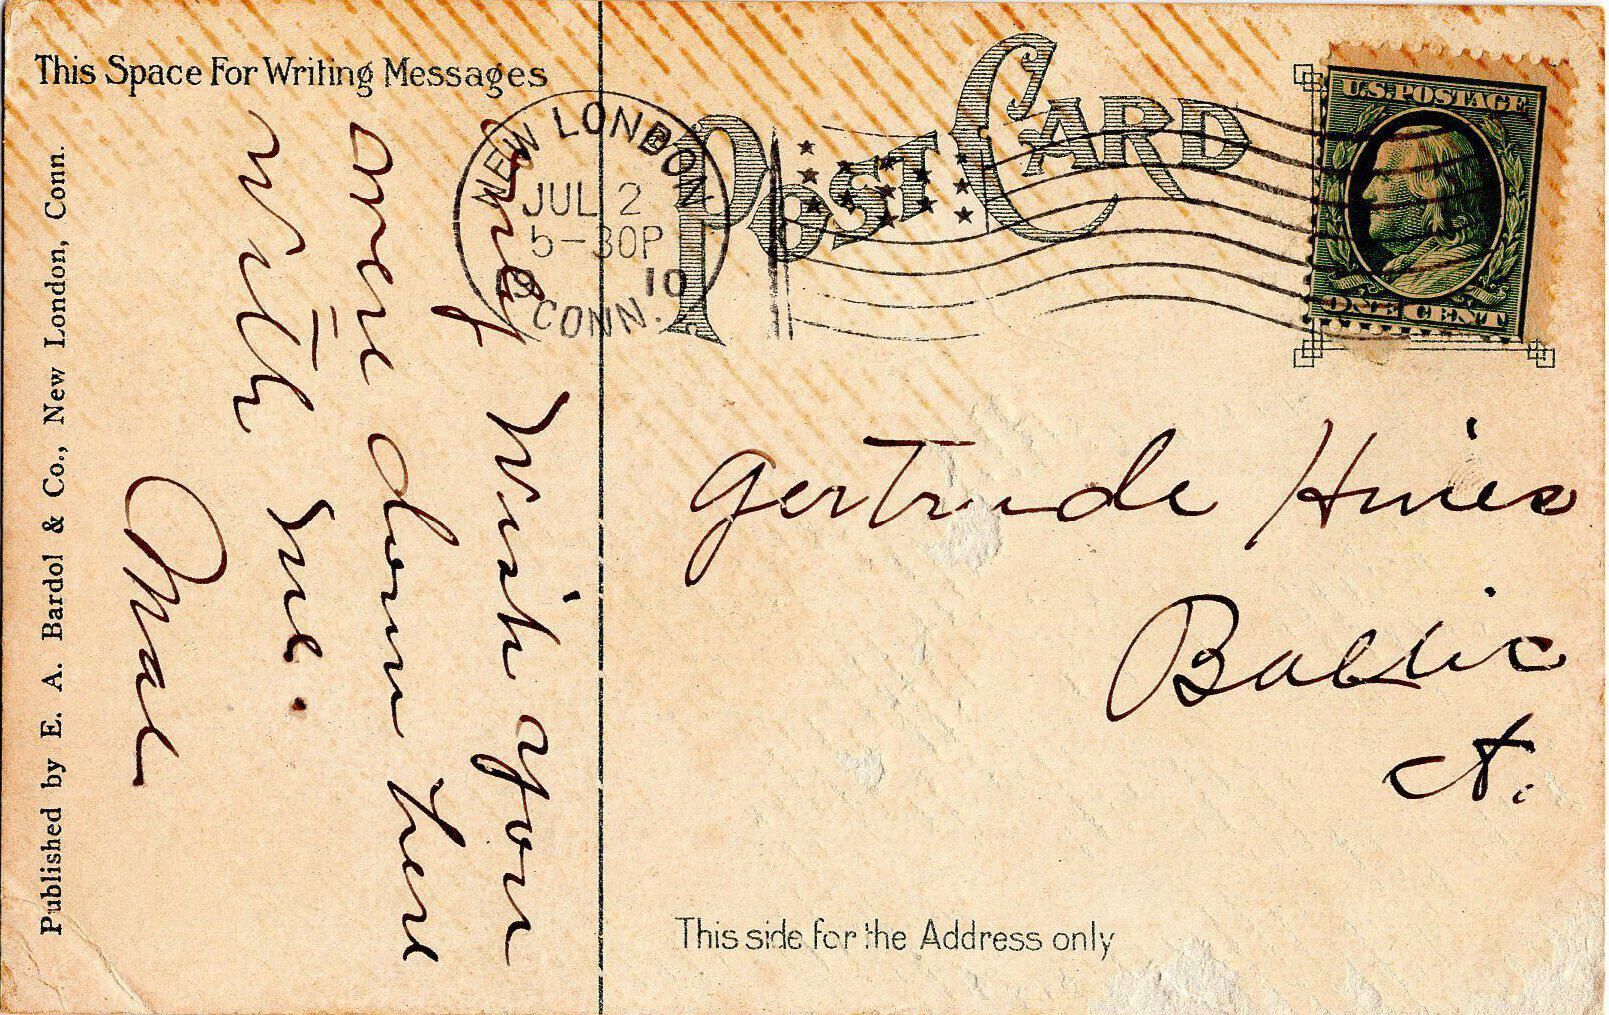 This Space For Writing Messages
POST CARD
U.S. POSTAGE
ONE CENT
NEW LONDON
JUL 2
5-30P
19 10
CONN.
only Wish you
were down here
with me.
Mae
Gertrude Hines
Baltic
Ct.
This side for the Address only
Published by E. A. Bardol & Co., New London, Conn.